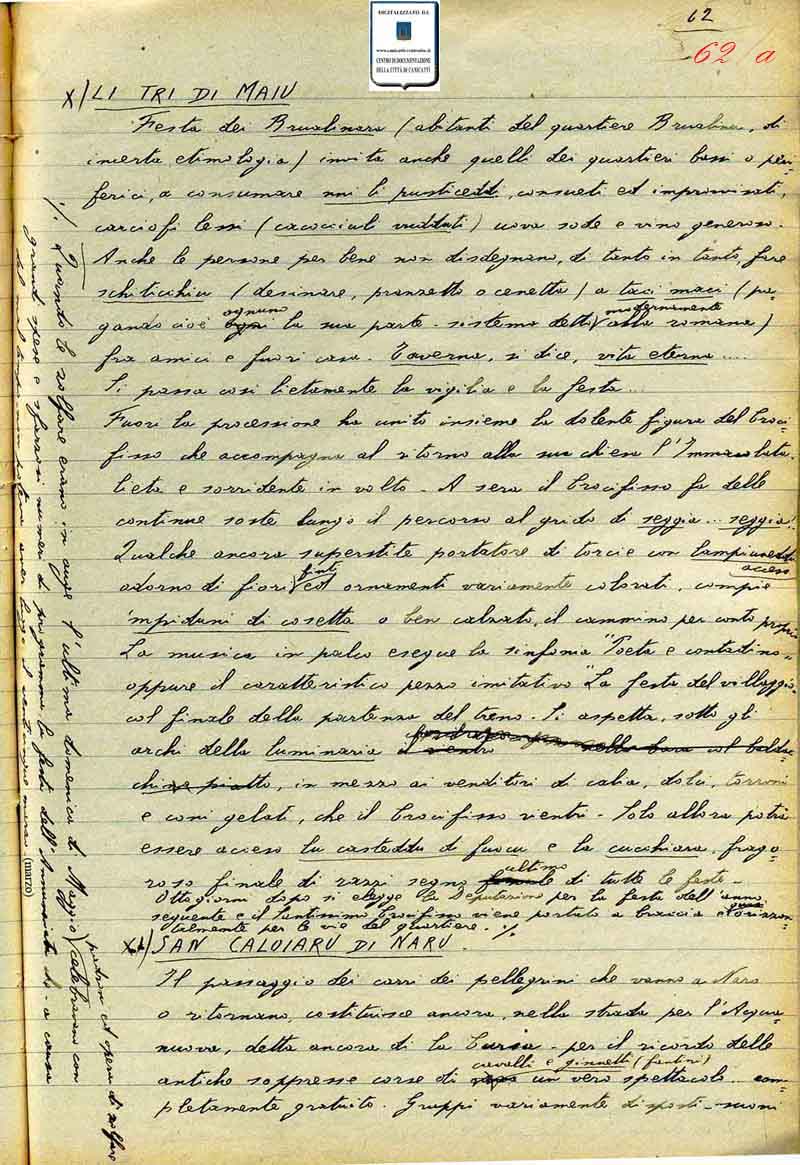 DIGITALIZZATO DA
www.canicatti-centrodoc.it
CENTRO DI DOCUMENTAZIONE
DELLA CITTÀ DI CANICATTÌ
62
62/a
X) LI TRI DI MAIU
Festa dei Brualinara (abitanti del quartiere Brualinu, di
incerta etimologia) invita anche quelli dei quartieri bassi o peri-
ferici, a consumare nni li pusticeddi, consueti ed improvvisati,
carciofi lessi (cacocciuli vudduti) uova sode e vino generoso.
Anche le persone per bene non disdegnano, di tanto in tanto, fare
schiticchiu (desinare, pranzetto o cenetta) a taci maci (pa-
gando cioè ognuno la sua parte - sistema detto modernamente alla romana)
fra amici e fuori casa. Taverna, si dice, vita eterna....
Si passa così lietamente la vigilia e la festa...
Fuori la processione ha unito insieme la dolente figura del Croci-
fisso che accompagna al ritorno alla sua chiesa l'Immacolata
lieta e sorridente in volto - A sera il Crocifisso fa delle
continue soste lungo il percorso al grido di seggia... seggia!
Qualche ancora superstite portatore di torcie con lampiuneddi
acceso
adorno di fiori finti ed ornamenti variamente colorati, compie
'mpiduni di cosetta o ben calzato, il cammino per conto proprio
La musica in palco esegue la sinfonia "Poeta e contadino"
oppure il caratteristico pezzo imitativo "La festa del villaggio
col finale della partenza del treno. Si aspetta, sotto gli
archi della luminaria
in mezzo ai venditori di calia, dolci, torroni
e coni gelati, che il Crocifisso rientri - Solo allora potrà
essere acceso lu casteddu di fuocu e la cucchiara, frago-
roso finale di razzi segno ultimo di tutte le feste -
Otto giorni dopo si elegge la Deputazione per la festa dell'anno
seguente e il Santissimo Crocifisso viene portato a braccia e orizzon-
talmente per le vie del quartiere. ·/.
XI) SAN CALOIARU DI NARU
Il passaggio dei carri dei pellegrini che vanno a Naro
o ritornano, costituisce ancora, nella strada per l'Acqua-
nuova, detta ancora di la Cursa - per il ricordo delle
antiche soppresse corse di cavalli e ginnetti (fantini) un vero spettacolo com-
pletamente gratuito. Gruppi variamente disposti - suoni
·/. Quando le zolfare erano in auge l'ultima domenica di Maggio padroni ed operai di zolfare celebravano con
grandi spese e sfarzosi numeri di programma la festa dell'Annunziata che - a causa
del mal tempo non poteva aver luogo il venticinque marzo (marzo)